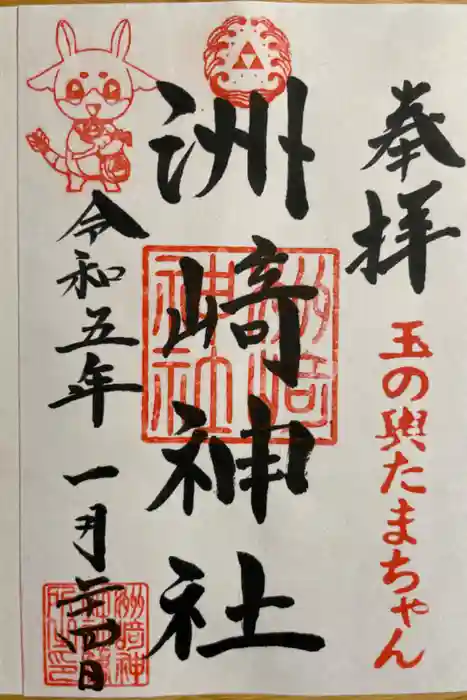 奉拝
玉の輿たまちゃん
洲崎神社
令和五年一月二十四日
洲崎神社